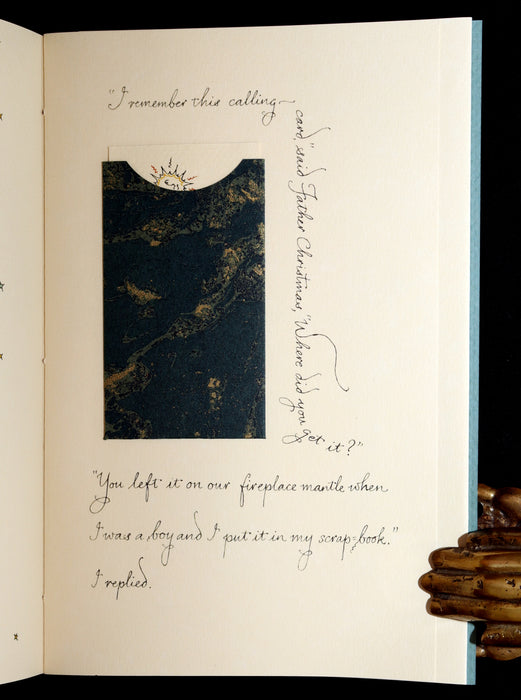 "I remember this calling
card," said Father Christmas, "Where did you get it?"
"You left it on our fireplace mantle when
I was a boy and I put it in my scrap-book."
I replied.